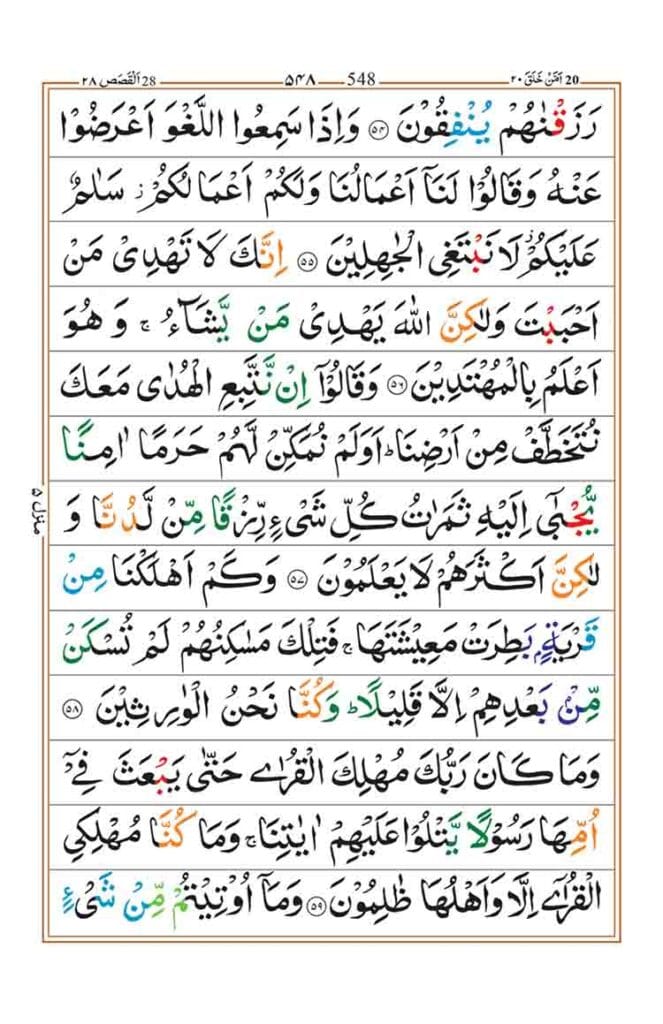 ٢٨ اَلْقَصَص 28 ٥٤٨ 548 ٢٠ اَمَّنْ خَلَقَ 20
رَزَقْنٰهُمْ يُنْفِقُوْنَ ﴿٥٤﴾ وَاِذَا سَمِعُوا اللَّغْوَ اَعْرَضُوْا
عَنْهُ وَقَالُوْا لَنَآ اَعْمَالُنَا وَلَكُمْ اَعْمَالُكُمْ ز سَلٰمٌ
عَلَيْكُمْ ز لَا نَبْتَغِى الْجٰهِلِيْنَ ﴿٥٥﴾ اِنَّكَ لَا تَهْدِىْ مَنْ
اَحْبَبْتَ وَلٰكِنَّ اللّٰهَ يَهْدِىْ مَنْ يَّشَآءُ ۚ وَ هُوَ
اَعْلَمُ بِالْمُهْتَدِيْنَ ﴿٥٦﴾ وَقَالُوْٓا اِنْ نَّتَّبِعِ الْهُدٰى مَعَكَ
نُتَخَطَّفْ مِنْ اَرْضِنَا ؕ اَوَلَمْ نُمَكِّنْ لَّهُمْ حَرَمًا اٰمِنًا
يُّجْبٰٓى اِلَيْهِ ثَمَرٰتُ كُلِّ شَىْءٍ رِّزْقًا مِّنْ لَّدُنَّا وَ
لٰكِنَّ اَكْثَرَهُمْ لَا يَعْلَمُوْنَ ﴿٥٧﴾ وَكَمْ اَهْلَكْنَا مِنْ
قَرْيَةٍۢ بَطِرَتْ مَعِيْشَتَهَا ۚ فَتِلْكَ مَسٰكِنُهُمْ لَمْ تُسْكَنْ
مِّنْۢ بَعْدِهِمْ اِلَّا قَلِيْلًا ؕ وَكُنَّا نَحْنُ الْوٰرِثِيْنَ ﴿٥٨﴾
وَمَا كَانَ رَبُّكَ مُهْلِكَ الْقُرٰى حَتّٰى يَبْعَثَ فِىْٓ
اُمِّهَا رَسُوْلًا يَّتْلُوْا عَلَيْهِمْ اٰيٰتِنَا ۚ وَمَا كُنَّا مُهْلِكِى
الْقُرٰٓى اِلَّا وَاَهْلُهَا ظٰلِمُوْنَ ﴿٥٩﴾ وَمَآ اُوْتِيْتُمْ مِّنْ شَىْءٍ
منزل ٥